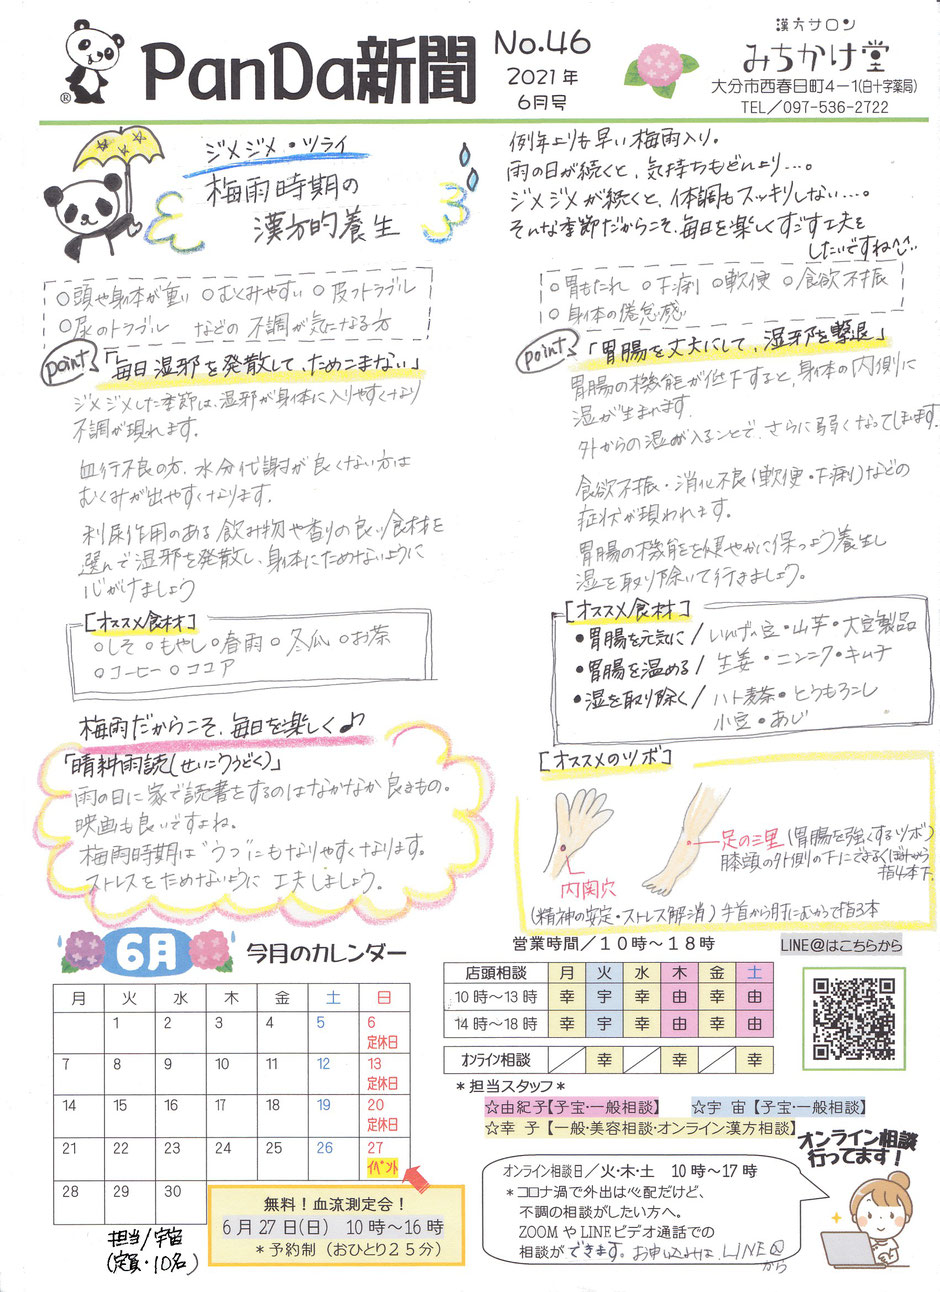 PanDa新聞
No.46
2021年
6月号
漢方サロン
みちかけ堂
大分市西春日町4－1(白十字薬局)
TEL／097-536-2722
®
ジメジメ・ツライ
梅雨時期の
漢方的養生
例年よりも早い梅雨入り。
雨の日が続くと、気持ちもどんより…。
ジメジメが続くと、体調もスッキリしない…。
そんな季節だからこそ、毎日を楽しくすごす工夫を
したいですね^^
○頭や身体が重い ○むくみやすい ○皮フトラブル
○尿のトラブル などの不調が気になる方
point
「毎日湿邪を発散して、ためこまない」
ジメジメした季節は、湿邪が身体に入りやすくなり
不調が現れます。
血行不良の方、水分代謝が良くない方は
むくみが出やすくなります。
利尿作用のある飲み物や香りの良い食材を
選んで湿邪を発散し、身体にためないように
心がけましょう
[オススメ食材]
○しそ ○もやし ○春雨 ○冬瓜 ○お茶
○コーヒー ○ココア
○胃もたれ ○下痢 ○軟便 ○食欲不振
○身体の倦怠感
point
「胃腸を丈夫にして、湿邪を撃退」
胃腸の機能が低下すると、身体の内側に
湿が生まれます。
外からの湿が入ることで、さらに弱くなってしまいます。
食欲不振・消化不良(軟便・下痢)などの
症状が現われます。
胃腸の機能をを健やかに保つよう養生し
湿を取り除いて行きましょう。
[オススメ食材]
●胃腸を元気に／いんげん豆・山芋・大豆製品
●胃腸を温める／生姜・ニンニク・キムチ
●湿を取り除く／ハト麦茶・とうもろこし
小豆・あじ
梅雨だからこそ、毎日を楽しく♪
「晴耕雨読(せいこううどく)」
雨の日に家で読書をするのはなかなか良きもの。
映画も良いですよね。
梅雨時期は“うつ”にもなりやすくなります。
ストレスをためないように工夫しましょう。
[オススメのツボ]
内関穴
(精神の安定・ストレス解消)手首から肘にむかって指3本
足の三里(胃腸を強くするツボ)
膝頭の外側の下にできるくぼみから
指4本下
6月
今月のカレンダー
月 火 水 木 金 土 日
1 2 3 4 5 6
定休日
7 8 9 10 11 12 13
定休日
14 15 16 17 18 19 20
定休日
21 22 23 24 25 26 27
イベント
28 29 30
担当/宇宙
(定員・10名)
無料！血流測定会！
6月27日(日) 10時～16時
＊予約制（おひとり25分）
営業時間／10時～18時
LINE@はこちらから
店頭相談 月 火 水 木 金 土
10時～13時 幸 宇 幸 由 幸 由
14時～18時 幸 宇 幸 由 幸 由
オンライン相談 幸 幸 幸
＊担当スタッフ＊
☆由紀子【子宝・一般相談】 ☆宇 宙【子宝・一般相談】
☆幸 子【一般・美容相談・オンライン漢方相談】
オンライン相談
行ってます！
オンライン相談日／火・木・土 10時～17時
＊コロナ渦で外出は心配だけど、
不調の相談がしたい方へ。
ZOOMやLINEビデオ通話での
相談ができます。お申し込みは、LINE@
から